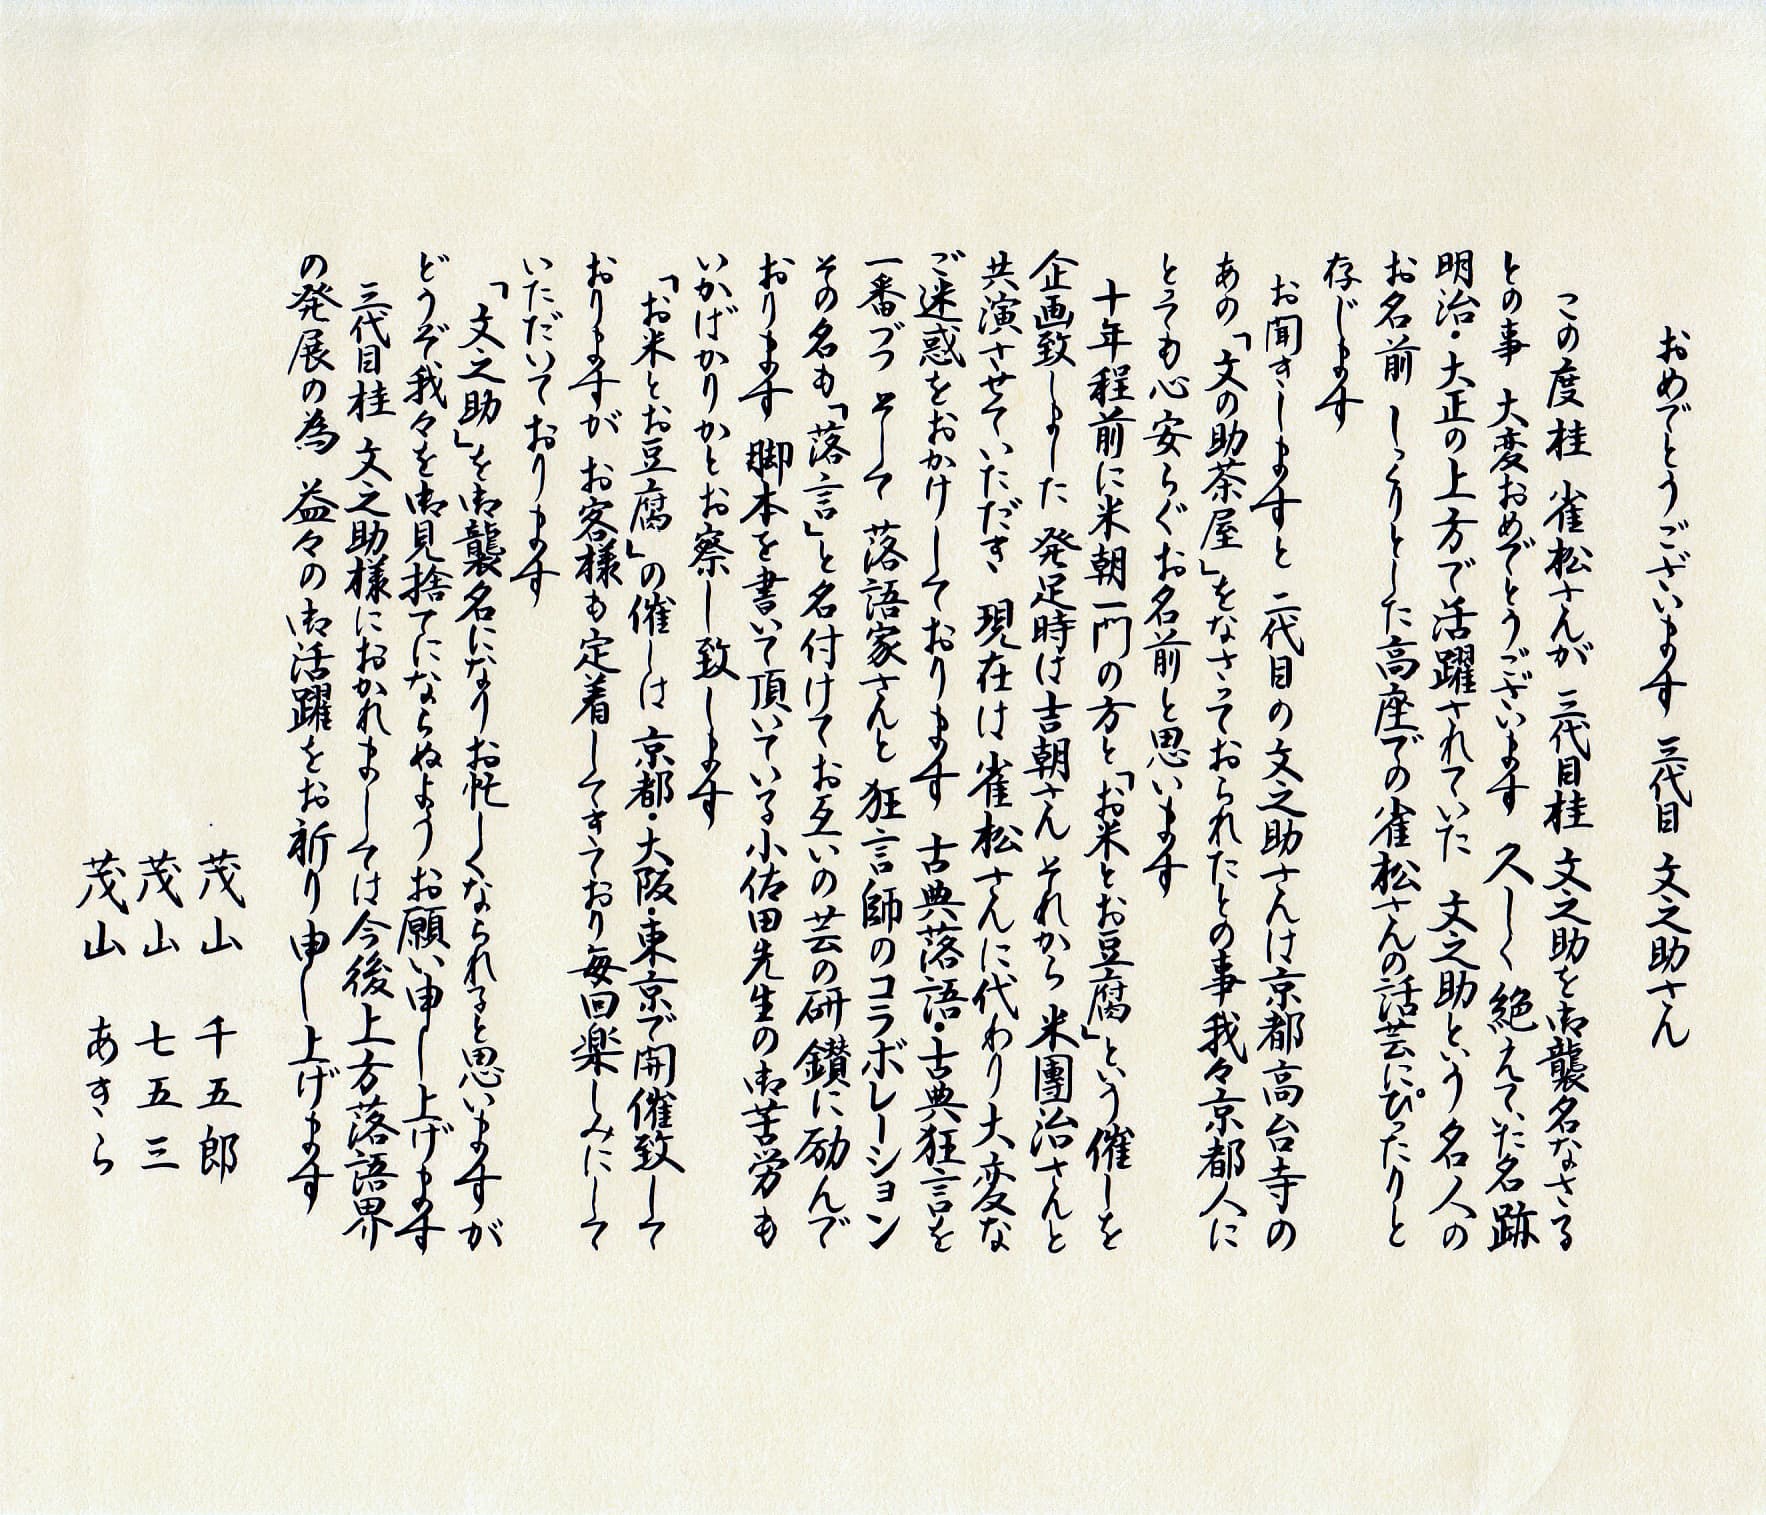 おめでとうございます 三代目 文之助さん
この度桂 雀松さんが 三代目桂 文之助を御襲名なさる
との事 大変おめでとうございます 久しく絶えていた名跡
明治・大正の上方で活躍されていた 文之助という名人の
お名前 しっくりとした高座での雀松さんの話芸にぴったりと
存じます
お聞きしますと 二代目の文之助さんは京都高台寺の
あの「文の助茶屋」をなさっておられたとの事 我々京都人に
とっても心安らぐお名前と思います
十年程前に米朝一門の方と「お米とお豆腐」という催しを
企画致しました 発足時は吉朝さん それから 米團治さんと
共演させていただき 現在は雀松さんに代わり大変な
ご迷惑をおかけしております 古典落語・古典狂言を
一番づつ そして 落語家さんと 狂言師のコラボレーション
その名も「落言」と名付けてお互いの芸の研鑽に励んで
おります 脚本を書いて頂いている小佐田先生の御苦労も
いかばかりかとお察し致します
「お米とお豆腐」の催しは 京都・大阪・東京で開催致して
おりますが お客様も定着してきており毎回楽しみにして
いただいております
「文之助」を御襲名になりお忙しくなられると思いますが
どうぞ我々を御見捨てにならぬようお願い申し上げます
三代目桂 文之助様におかれましては今後上方落語界
の発展の為 益々の御活躍をお祈り申し上げます
茂山 千五郎
茂山 七五三
茂山 あきら